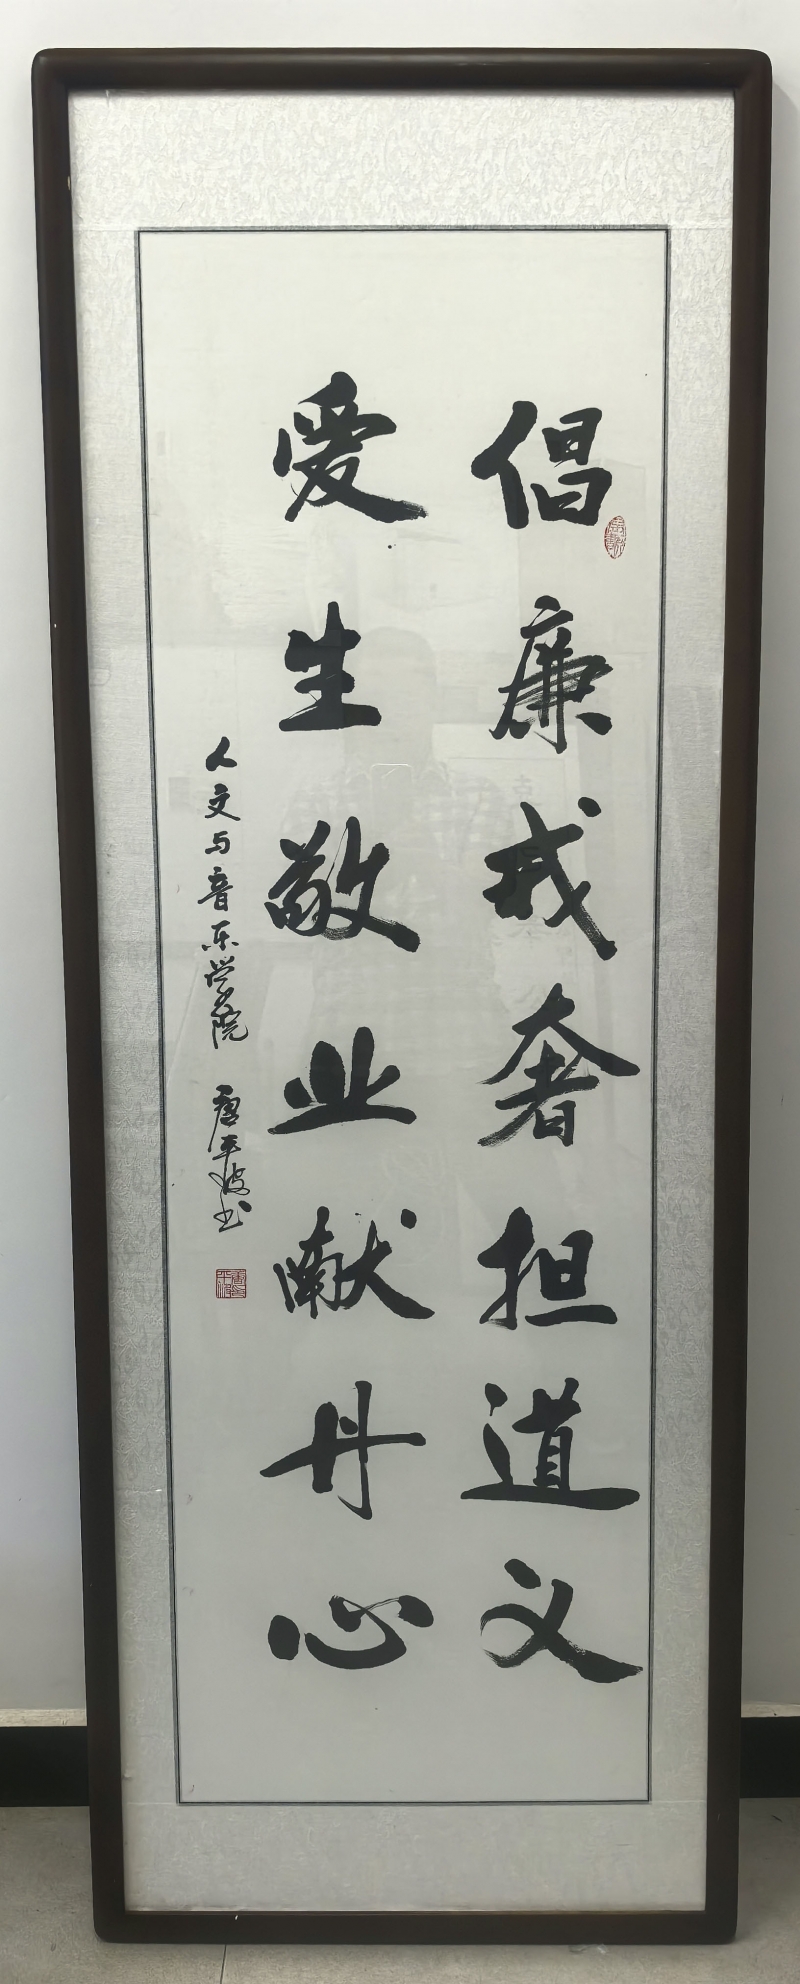 倡廉戒奢担道义
爱生敬业献丹心
人文与音乐学院 唐平波书